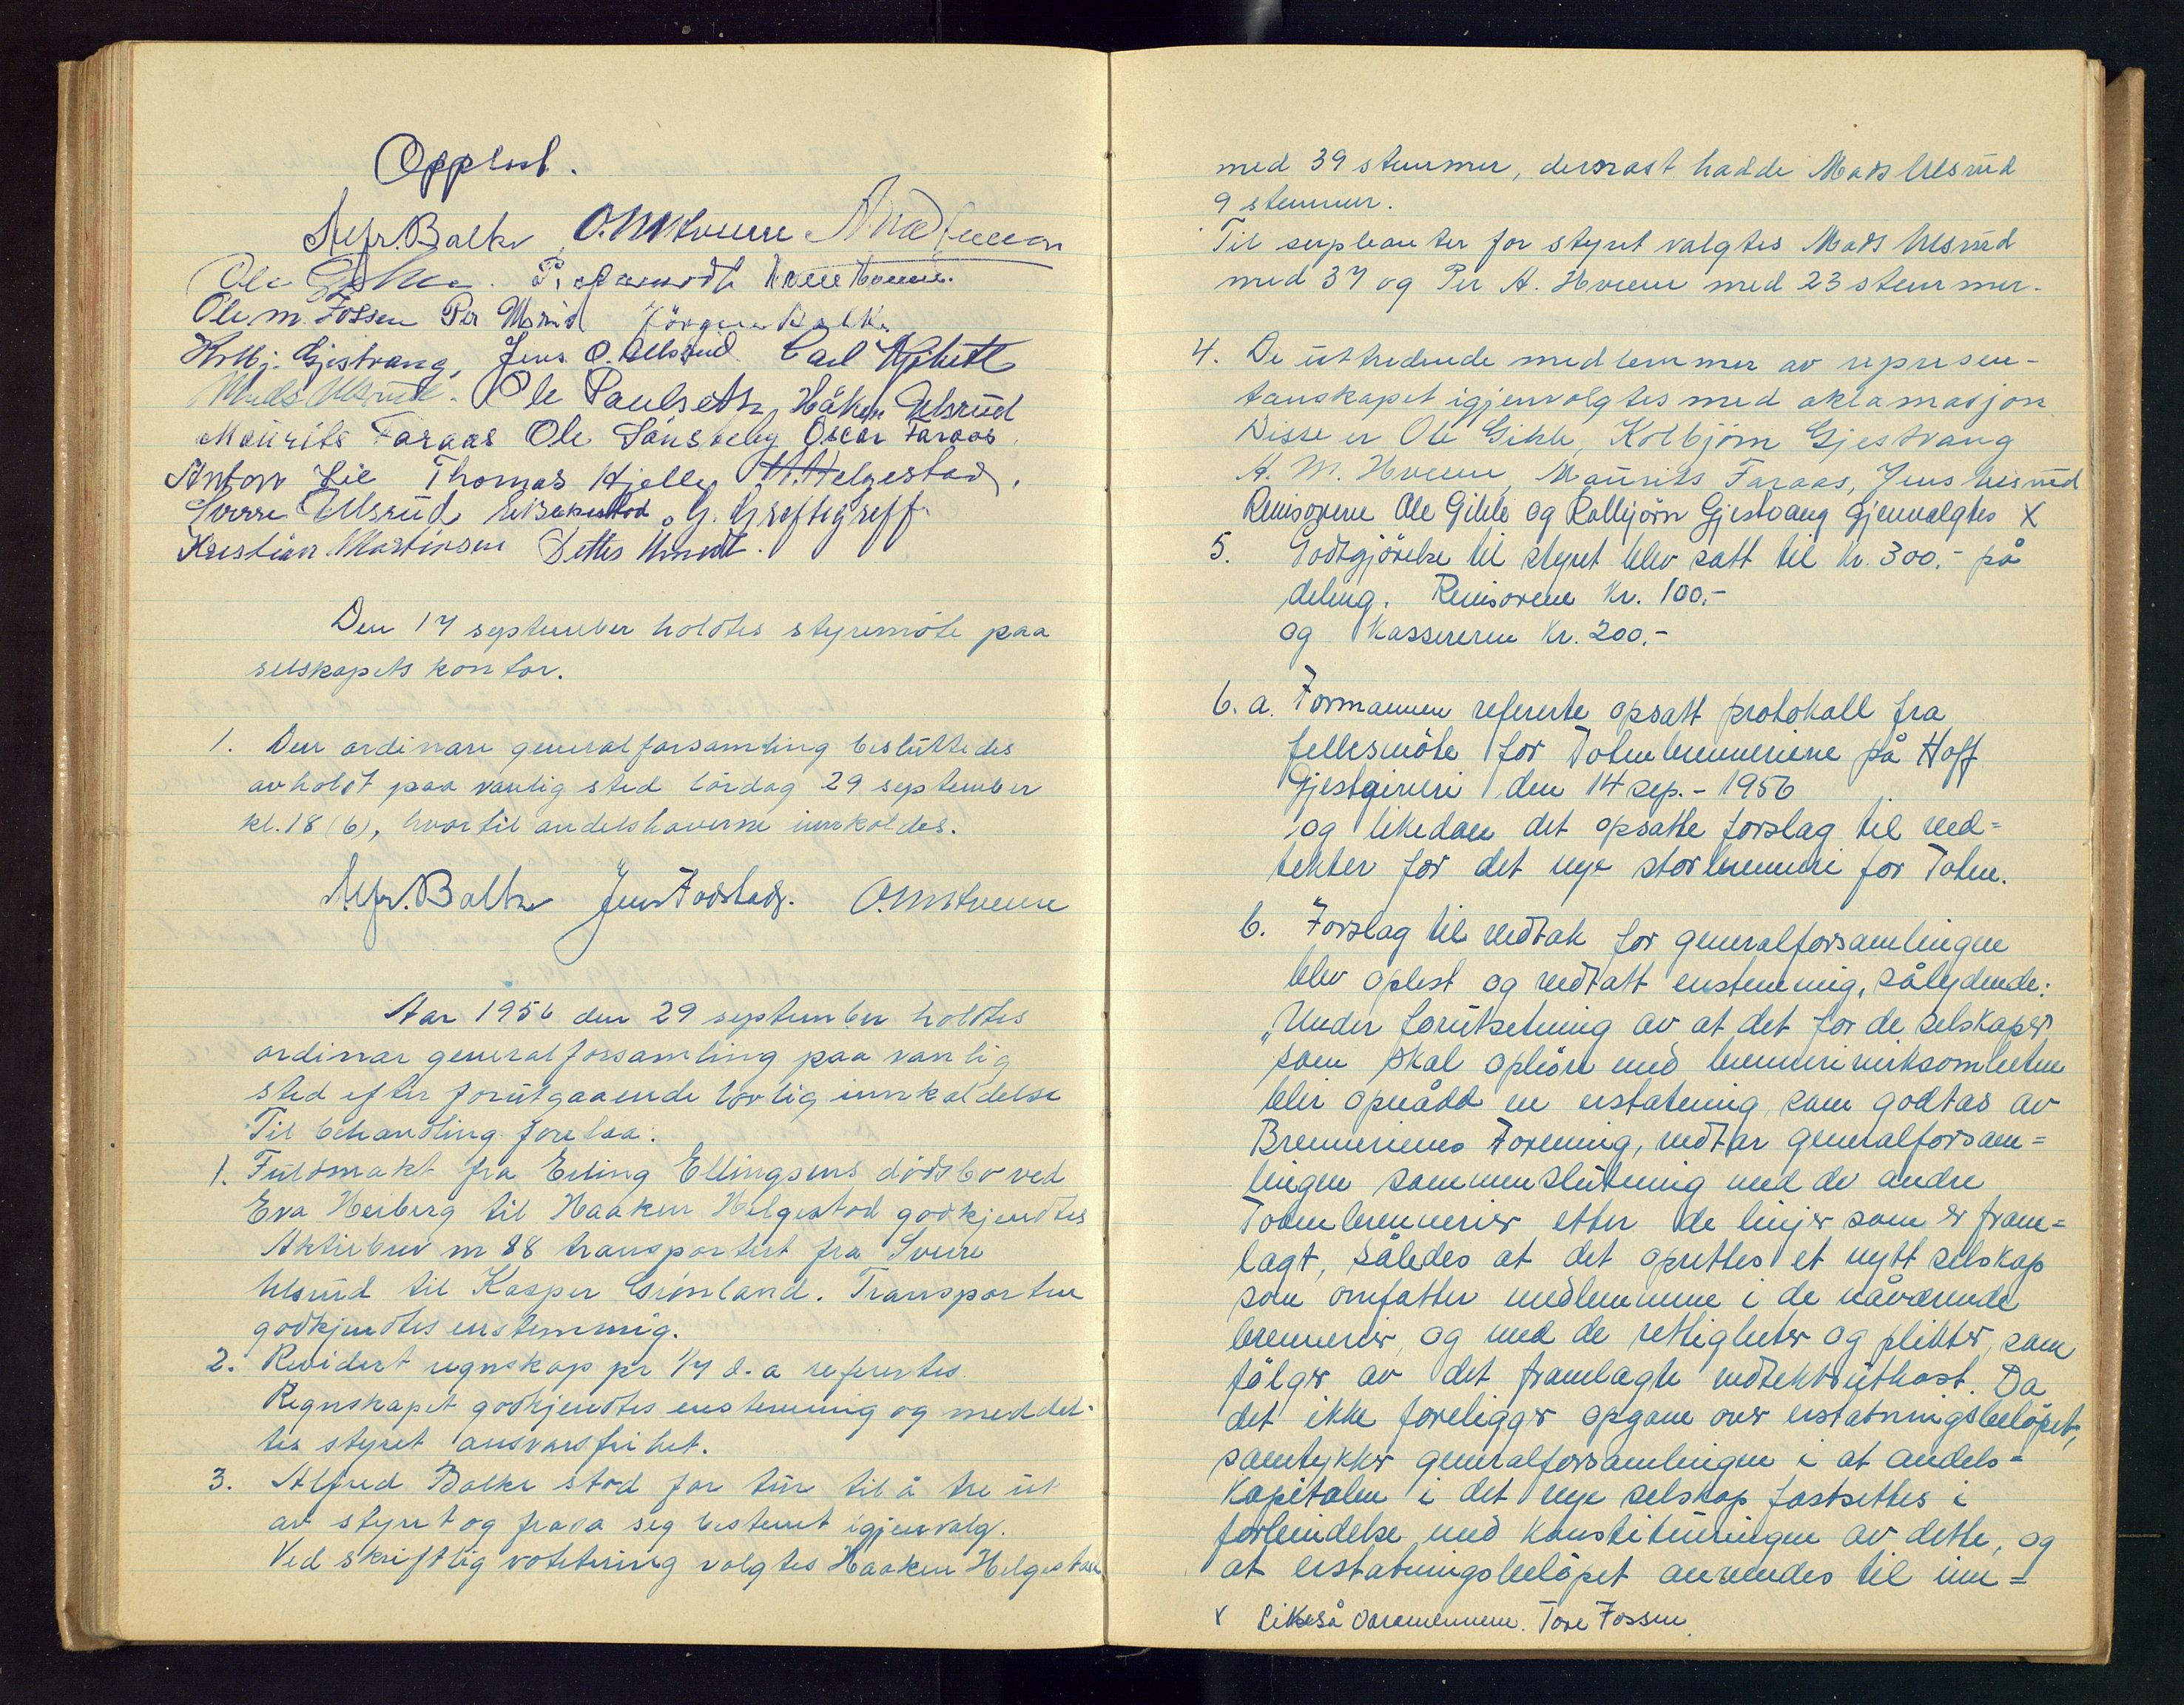 Opplest.
Alfr. Balke O. M. Hveem
Ole Gihle.
Ole M. Fossen Per Ulsrud Jörgen Balke
Kolbj. Gjestvang, Jens O. Ulsrud. Carl
Mads Ulsrud. Ole Paulseth, Håken Ulsrud
Maurits Faraas Ole Sönsteby Oscar Faraas.
Anton Lie Thomas Hjelle H. Helgestad.
Sverre Ullsrud G. Greftegreff
Kristian Martinsen
Den 17 september holdtes styremöte paa
selskapets kontor.
1. Den ordinære generalforsamling besluttedes
avholdt paa vanlig sted lördag 29 september
kl. 18 (6), hvortil andelshaverne innkaldes.
Alfr. Balke Jens Fodstad. O. M. Hveem
Aar 1956 den 29 september holdtes
ordinær generalforsamling paa vanlig
sted efter forutgaaende lovlig innkaldelse
Til behandling forelaa:
1. Fuldmakt fra Erling Ellingsens dödsbo ved
Eva Heiberg til Haaken Helgestad godkjendtes
Aktiebrev nr 88 transportert fra Sverre
Ulsrud til Kasper Grönland. Transporten
godkjendtes enstemmig.
2. Revidert regnskap pr 1/7 d. a refertes.
Regnskapet godkjendtes enstemmig og meddel-
tes styret ansvarsfrihet.
3. Alfred Balke stod for tur til å tre ut
av styret og frasa seg bestemt igjenvalg.
Ved skriftlig votetering valgtes Haaken Helgestad
med 39 stemmer, dernæst hadde Mads Ulsrud
9 stemmer.
Til supleanter for styret valgtes Mads Ulsrud
med 37 og Per A. Hveem med 23 stemmer.
4. De uttredende medlemmer av represen-
tanskapet igjenvalgtes med aklamasjon
Disse er Ole Gihle, Kolbjörn Gjestvang
A. M. Hveem, Maurits Faraas, Jens Ulsrud
Revisorene Ole Gihle og Kolbjörn Gjestvang gjenvalgtes X
5. Godtgjörelse til styret blev satt til kr. 300.- på
deling. Revisorene kr. 100.-
og Kassereren kr. 200.-
6. a. Formannen refererte opsatt protokoll fra
fellesmöte for Totenbrenneriene på Hoff
Gjestgiveri den 14 sep. - 1956
og likedan det opsatte forslag til ved=
tekter for det nye storbrenneri for Toten.
b. Forslag til vedtak for generalforsamlingen
blev oplest og vedtatt enstemmig, sålydende:
"Under forutsetning av at det for de selskaper
som skal ophöre med brennerivirksomheten
blir opnådd en erstatning, som godtas av
Brennerienes Forening, vedtar generalforsam=
lingen sammenslutning med de andre
Totenbrennerier etter de linjer som er fram=
lagt, således at det oprettes et nytt selskap
som omfatter medlemmene i de nåværende
brennerier, og med de rettigheter og plikter, som
fölger av det framlagte vedtektsutkast. Da
det ikke foreligger opgave over erstatningsbelöpet,
samtykker generalforsamlingen i at andels-
Kapitalen i det nye selskap fastsettes i
forbindelse med konstitueringen av dette, og
at erstatningsbelöpet anvendes til inn=
X Likeså varamennene. Tore Fossen.